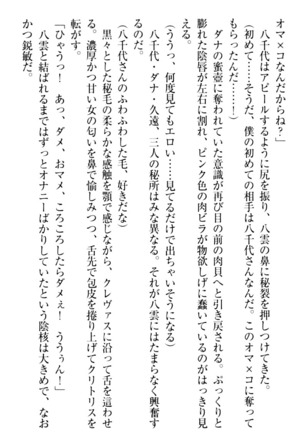 オマ×コなんだからね」
　八千代はアピールするように尻を振り、八雲の鼻に秘裂を押しつけてきた。
（初めて……そうだ、僕の初めての相手は八千代さんなんだ。このオマ×コに奪って
もらったんだ……！）
　ダナの蜜壺に奪われていた意識が再び目の前の肉貝へと引き戻される。ぷっくりと
膨れた陰唇が左右に割れ、ピンク色の肉ビラが物欲しげに蠢いているのがはっきり見
える。
（ううっ、何度見てもエロい……見てるだけで出ちゃいそうになる）
　八千代・ダナ・久遠、三人の秘所はみな異なる。それが八雲にはたまらなく興奮す
るのだ。
（八千代さんのふわふわした毛、好きだな）
　黒々とした秘毛の柔らかな感触を顎で感じながら、クレヴァスに沿って舌を這わせ
る。濃厚かつ甘い女の匂いを鼻で愉しみつつ、舌先で包皮を捲り上げてクリトリスを
転がす。
「ひゃうっ！　あっ、ダメ、おマメ、ころころしたらダメぇ！　ううぅん！」
　八雲と結ばれるまではずっとオナニーばかりしていたという陰核は大きめで、なお
かつ鋭敏だ。